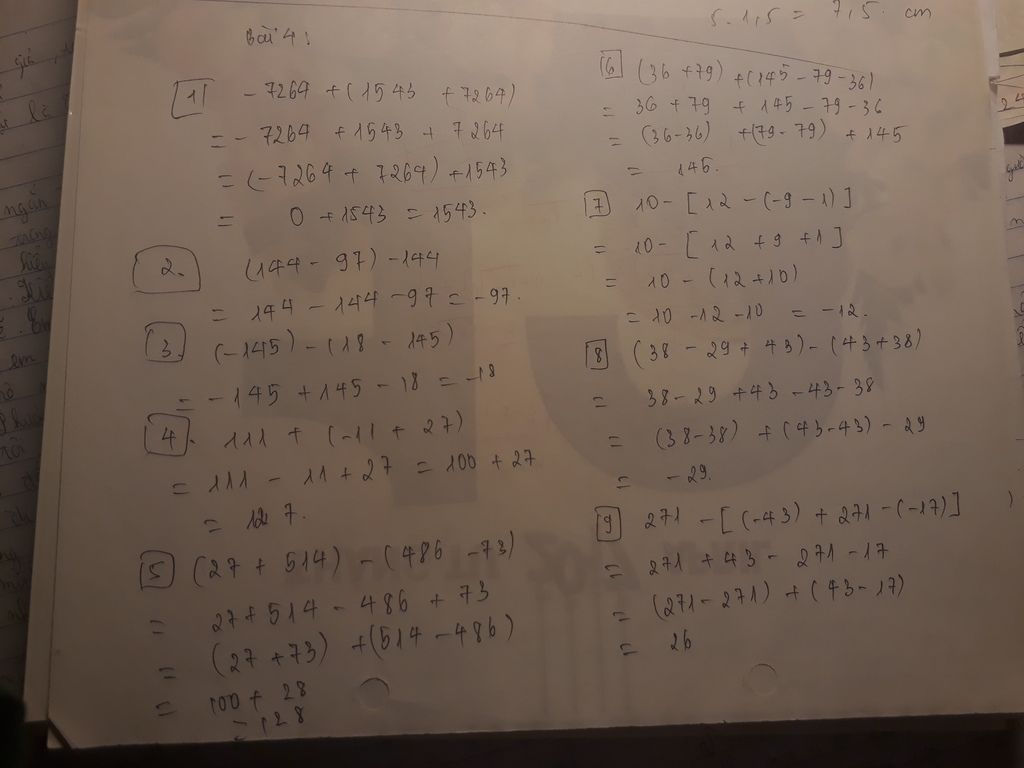 5.1,5 = 7,5. cm
Bài 4:
1 -7264 + (1543 + 7264)
= -7264 + 1543 + 7264
= (-7264 + 7264) + 1543
= 0 + 1543 = 1543.
2. (144 - 97) - 144
= 144 - 144 - 97 = -97.
3. (-145) - (18 - 145)
= -145 + 145 - 18 = -18
4. 111 + (-11 + 27)
= 111 - 11 + 27 = 100 + 27
= 127.
5 (27 + 514) - (486 - 73)
= 27 + 514 - 486 + 73
= (27 + 73) + (514 - 486)
= 100 + 28
= 128
6 (36 + 79) + (145 - 79 - 36)
= 36 + 79 + 145 - 79 - 36
= (36 - 36) + (79 - 79) + 145
= 145.
7 10 - [12 - (-9 - 1)]
= 10 - [12 + 9 + 1]
= 10 - (12 + 10)
= 10 - 12 - 10 = -12.
8 (38 - 29 + 43) - (43 + 38)
= 38 - 29 + 43 - 43 - 38
= (38 - 38) + (43 - 43) - 29
= -29.
9 271 - [(-43) + 271 - (-17)]
= 271 + 43 - 271 - 17
= (271 - 271) + (43 - 17)
= 26